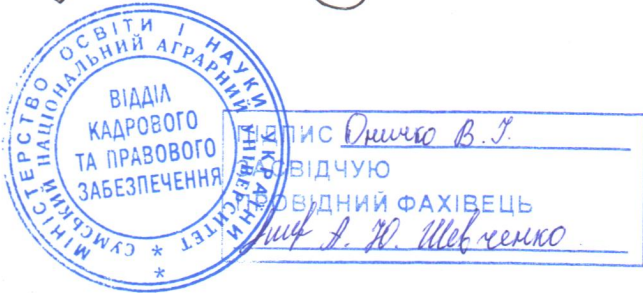 МІНІСТЕРСТВО ОСВІТИ І НАУКИ УКРАЇНИ
СУМСЬКИЙ НАЦІОНАЛЬНИЙ АГРАРНИЙ УНІВЕРСИТЕТ
ВІДДІЛ
КАДРОВОГО
ТА ПРАВОВОГО
ЗАБЕЗПЕЧЕННЯ
ПІДПИС Оничко В. І.
ЗАСВІДЧУЮ
ПРОВІДНИЙ ФАХІВЕЦЬ
А. Ю. Шевченко